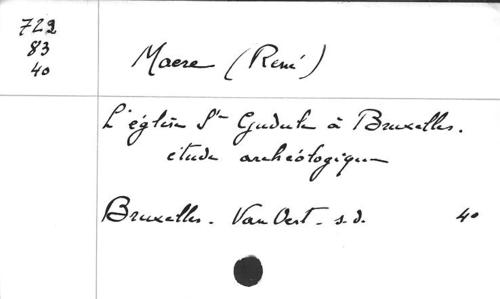 722
83
40
Maere (René)
L'église Ste Gudule à Bruxelles.
étude archéologique
Bruxelles. Van Oest. s.d. 40